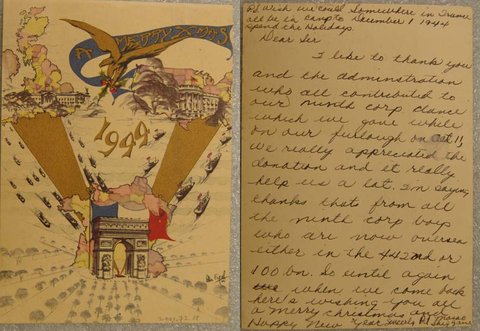 A HAPPY XMAS
1944
2001.72.11
P.S. wish we could
all be in camp to
spend the Holidays.
Somewhere in France
December 1 1944
Dear Sir
I like to thank you
and the adminstration
who all contributed to
our ninth corp dance
which we gave while
on our furlough on Oct 11
We really appreciated the
donation and it really
help us a lot. Im saying
thanks thats from all
the ninth corp boys
who are now oversea
either in the 442nd or
100 bn. So until again
when we come back
here's wishing you all
a merry christmas and
Happy New Year